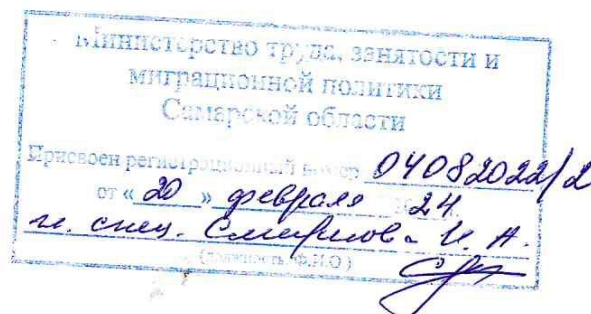 Министерство труда, занятости и
миграционной политики
Самарской области
Присвоен регистрационный номер 04082022/2
от « 20 » февраля 2024г.
гл. спец. Смирнова И. А.
(должность, Ф.И.О.)